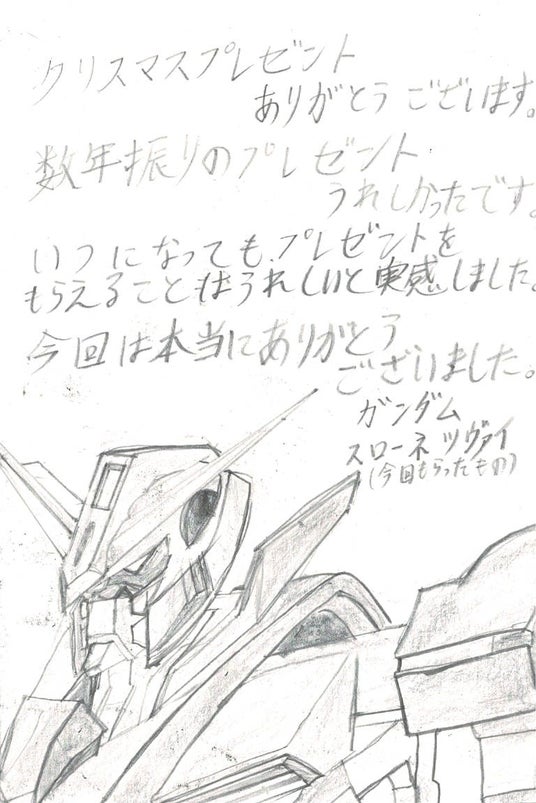 クリスマスプレゼント
ありがとうございます。
数年振りのプレゼント
うれしかったです。
いつになっても、プレゼントを
もらえることはうれしいと実感しました。
今回は本当にありがとう
ございました。
ガンダム
スローネツヴァイ
(今回もらったもの)